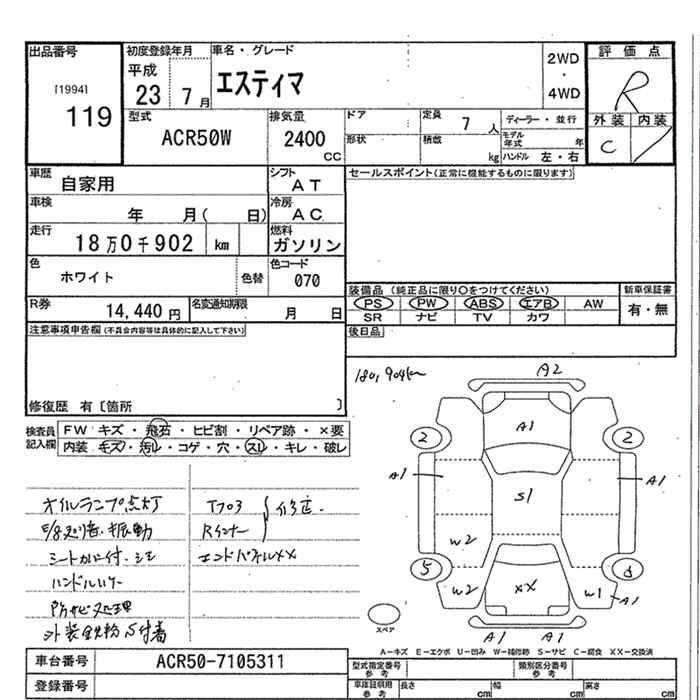 出品番号
[1994]
119
初度登録年月
平成
23 7月
車名・グレード
エスティマ
2WD
・
4WD
評価点
R
外装 内装
C
型式
ACR50W
排気量
2400
CC
ドア
形状
定員
7人
積載
kg
ディーラー・並行
モデル年式 年
ハンドル 左・右
車歴
自家用
シフト
AT
車検
年 月( 日)
冷房
AC
走行
18万0千902 km
燃料
ガソリン
色
ホワイト
色替
色コード
070
R券
14,440 円
名変通知期限
月 日
セールスポイント(正常に機能するものに限ります)
装備品 (純正品に限り○をつけてください)
新車保証書
PS PW ABS エアB AW
有・無
SR ナビ TV カワ
後日品
注意事項申告欄(不具合内容等は具体的に記入して下さい)
修復歴 有〔箇所 〕
検査員記入欄
FW キズ・飛石・ヒビ割・リペア跡・×要
内装 キズ・汚レ・コゲ・穴・スレ・キレ・破レ
オイルランプ点灯
シートカバー付
防サビ処理
外装鉄粉付着
エンドパネルXX
修正.
180,904km
A2
A1
2
2
A1
S1
A1
W2
5
6
W2
XX
W1
A1
A1
A1
スペア
A-キズ E-エクボ U-凹み W-補修跡 S-サビ C-腐食 XX-交換済
車台番号
ACR50-7105311
登録番号
型式指定番号
参考
類別区分番号
参考
車庫証明用
参考
長さ cm
幅 cm
高さ cm